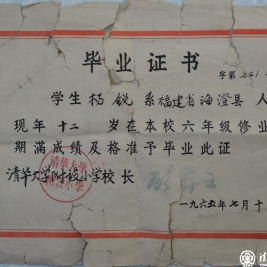 毕业证书
字第241
学生杨锐系福建省海澄县人
现年十二岁在本校六年级修业
期满成绩及格准予毕业此证
清华大学附设小学校长
一九六五年七月十
清华大学
附设小学